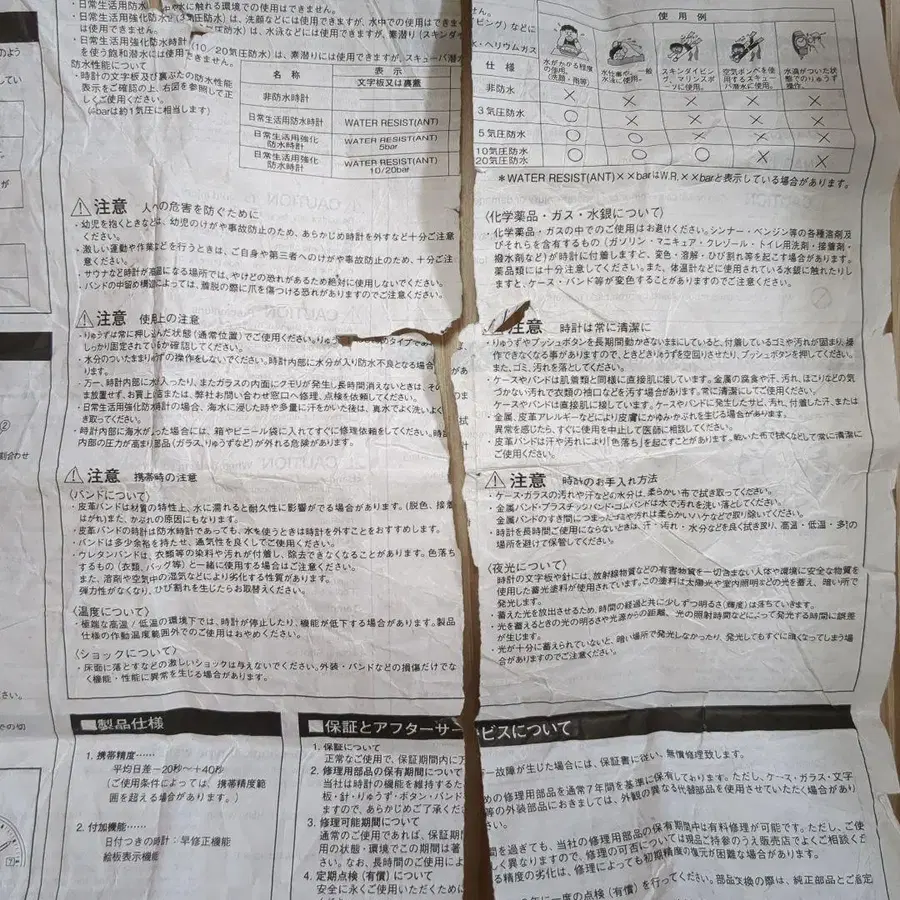 ・日常生活用防水
・日常生活用防水(3気圧防水)は、洗顔などには使用できますが、水中での使用はできません。
・日常生活用強化防水時計
は使用できません。
(10/20気圧防水)は、素潜りには使用できますが、スキューバ潜水
を使う飽和潜水には使用できません。
防水性能について
・時計の文字板及び裏ぶたの防水性能
表示をご確認の上、右図を参照して正
しくご使用ください。
(=barは約1気圧に相当します)
名称 表示
文字板又は裏蓋
非防水時計
日常生活用防水時計 WATER RESIST(ANT)
日常生活用強化
防水時計 WATER RESIST(ANT)
5bar
日常生活用強化
防水時計 WATER RESIST(ANT)
10/20bar
使用例
仕様 水がかかる程度
の使用。
(洗顔、雨等)
スキンダイビン
グ、マリンスポ
ーツに使用。
空気ボンベを使
用するスキュー
バ潜水に使用。
水滴がついた状
態でのりゅうず
操作。
非防水 × × × × ×
3気圧防水 ○ × × × ×
5気圧防水 ○ ○ × × ×
10気圧防水
20気圧防水 ○ ○ ○ × ×
*WATER RESIST(ANT)××barはW.R.××barと表示している場合があります。
注意 人への危害を防ぐために
・幼児を抱くときなどは、幼児のけがや事故防止のため、あらかじめ時計を外すなど十分ご注意
ください。
・激しい運動や作業などを行うときは、ご自身や第三者へのけがや事故防止のため、十分ご注
ください。
・サウナなど時計が高温になる場所では、やけどの恐れがあるため絶対に使用しないでください。
・バンドの中留め構造によっては、着脱の際に爪を傷つける恐れがありますのでご注意ください。
注意 使用上の注意
・りゅうずは常に押し込んだ状態(通常位置)でご使用ください。りゅうずがねじのタイプであ
しっかり固定されているか確認してください。
・水分のついたままりゅうずの操作をしないでください。時計内部に水分が入り防水不良となる場合
・万一、時計内部に水が入ったり、またガラスの内面にクモリが発生し長時間消えないときは、その
まま放置せず、お買上店または、弊社お問い合わせ窓口へ修理、点検を依頼してください。
・日常生活用強化防水時計の場合、海水に浸した時や多量に汗をかいた後は、真水でよく洗いよく
き取ってください。
・時計内部に海水が入った場合には、箱やビニール袋に入れてすぐに修理依頼をしてください。時計
内部の圧力が高まり部品(ガラス、りゅうずなど)が外れる危険があります。
注意 携帯時の注意
〈バンドについて〉
・皮革バンドは材質の特性上、水に濡れると耐久性に影響がでる場合があります。(脱色、接着
はがれ)また、かぶれの原因にもなります。
・皮革バンドの時計は防水時計であっても、水を使うときは時計を外すことをおすすめします。
・バンドは多少余裕を持たせ、通気性を良くしてご使用ください。
・ウレタンバンドは、衣類等の染料や汚れが付着し、除去できなくなることがあります。色落ち
するもの(衣類、バッグ等)と一緒に使用する場合はご注意ください。
また、溶剤や空気中の湿気などにより劣化する性質があります。
弾力性がなくなり、ひび割れを生じたらお取替えください。
〈温度について〉
・極端な高温/低温の環境下では、時計が停止したり、機能が低下する場合があります。製品
仕様の作動温度範囲外でのご使用はおやめください。
〈ショックについて〉
・床面に落とすなどの激しいショックは与えないでください。外装・バンドなどの損傷だけでな
く機能・性能に異常を生じる場合があります。
〈化学薬品・ガス・水銀について〉
・化学薬品・ガスの中でのご使用はお避けください。シンナー・ベンジン等の各種溶剤及
びそれらを含有するもの(ガソリン・マニキュア・クレゾール・トイレ用洗剤・接着剤・
撥水剤など)が時計に付着しますと、変色・溶解・ひび割れ等を起こす場合があります。
薬品類には十分注意してください。また、体温計などに使用されている水銀に触れたりし
ますと、ケース・バンド等が変色することがありますのでご注意ください。
注意 時計は常に清潔に
・りゅうずやプッシュボタンを長期間動かさないままにしていると、付着しているゴミや汚れが固まり、操
作できなくなる事がありますので、ときどきりゅうずを空回りさせたり、プッシュボタンを押してください。
また、ゴミ、汚れを落としてください。
・ケースやバンドは肌着類と同様に直接肌に接しています。金属の腐食や汗、汚れ、ほこりなどの気
づかない汚れで衣類の袖口などを汚す場合があります。常に清潔にしてご使用ください。
・ケースやバンドは直接肌に接しています。ケースやバンドに発生したサビ、汚れ、付着した汗、または
金属、皮革アレルギーなどにより皮膚にかゆみ・かぶれを生じる場合があります。
異常を感じたら、すぐに使用を中止して医師に相談してください。
・皮革バンドは汗や汚れにより「色落ち」を起こすことがあります。乾いた布で拭くなどして常に清潔に
ご使用ください。
注意 時計のお手入れ方法
・ケース・ガラスの汚れや汗などの水分は、柔らかい布で拭き取ってください。
・金属バンド・プラスチックバンド・ゴムバンドは水で汚れを洗い落としてください。
金属バンドのすき間につまったゴミや汚れは柔らかいハケなどで取り除いてください。
・時計を長時間ご使用にならないときは、汗・汚れ・水分などを良く拭き取り、高温・低温・多湿の
場所を避けて保管してください。
〈夜光について〉
時計の文字板や針には、放射線物質などの有害物質を一切含まない人体や環境に安全な物質を
使用した蓄光塗料が使用されています。この塗料は太陽光や室内照明などの光を蓄え、暗い所で
発光します。
・蓄えた光を放出させるため、時間の経過と共に少しずつ明るさ(輝度)は落ちていきます。
・光を蓄えるときの光の明るさや光源からの距離、光の照射時間などによって発光する時間に誤差
が生じます。
・光が十分に蓄えられていないと、暗い場所で発光しなかったり、発光してもすぐに暗くなってしまう場
合がありますのでご注意ください。
製品仕様
1. 携帯精度……
平均日差−20秒〜+40秒
(ご使用条件によっては、携帯精度範
囲を超える場合があります。)
2. 付加機能……
日付つきの時計:早修正機能
絵板表示機能
保証とアフターサービスについて
1. 保証について
正常なご使用で、保証期間内に万一故障が生じた場合には、保証書に従い、無償修理致します。
2. 修理用部品の保有期間について
当社は時計の機能を維持するための修理用部品を通常7年間を基準に保有しております。ただし、ケース・ガラス・文字
板・針・りゅうず・ボタン・バンド等の外装部品におきましては、外観の異なる代替部品を使用させていただく場合があり
ますので、あらかじめご了承くだ
3. 修理可能期間について
通常のご使用であれば、保証期間を過ぎても、当社の修理用部品の保有期間中は有料修理が可能です。ただし、ご使
用の状態・環境でこの期間は著しく異なりますので、修理の可否については現品ご持参のうえ販売店でよくご相談くだ
さい。なお、長時間のご使用による精度の劣化は、修理によっても初期精度の復元が困難な場合があります。
4. 定期点検(有償)について
安全に永くご使用いただくために
年に一度の点検(有償)を行ってください。部品交換の際は、純正部品とご指定